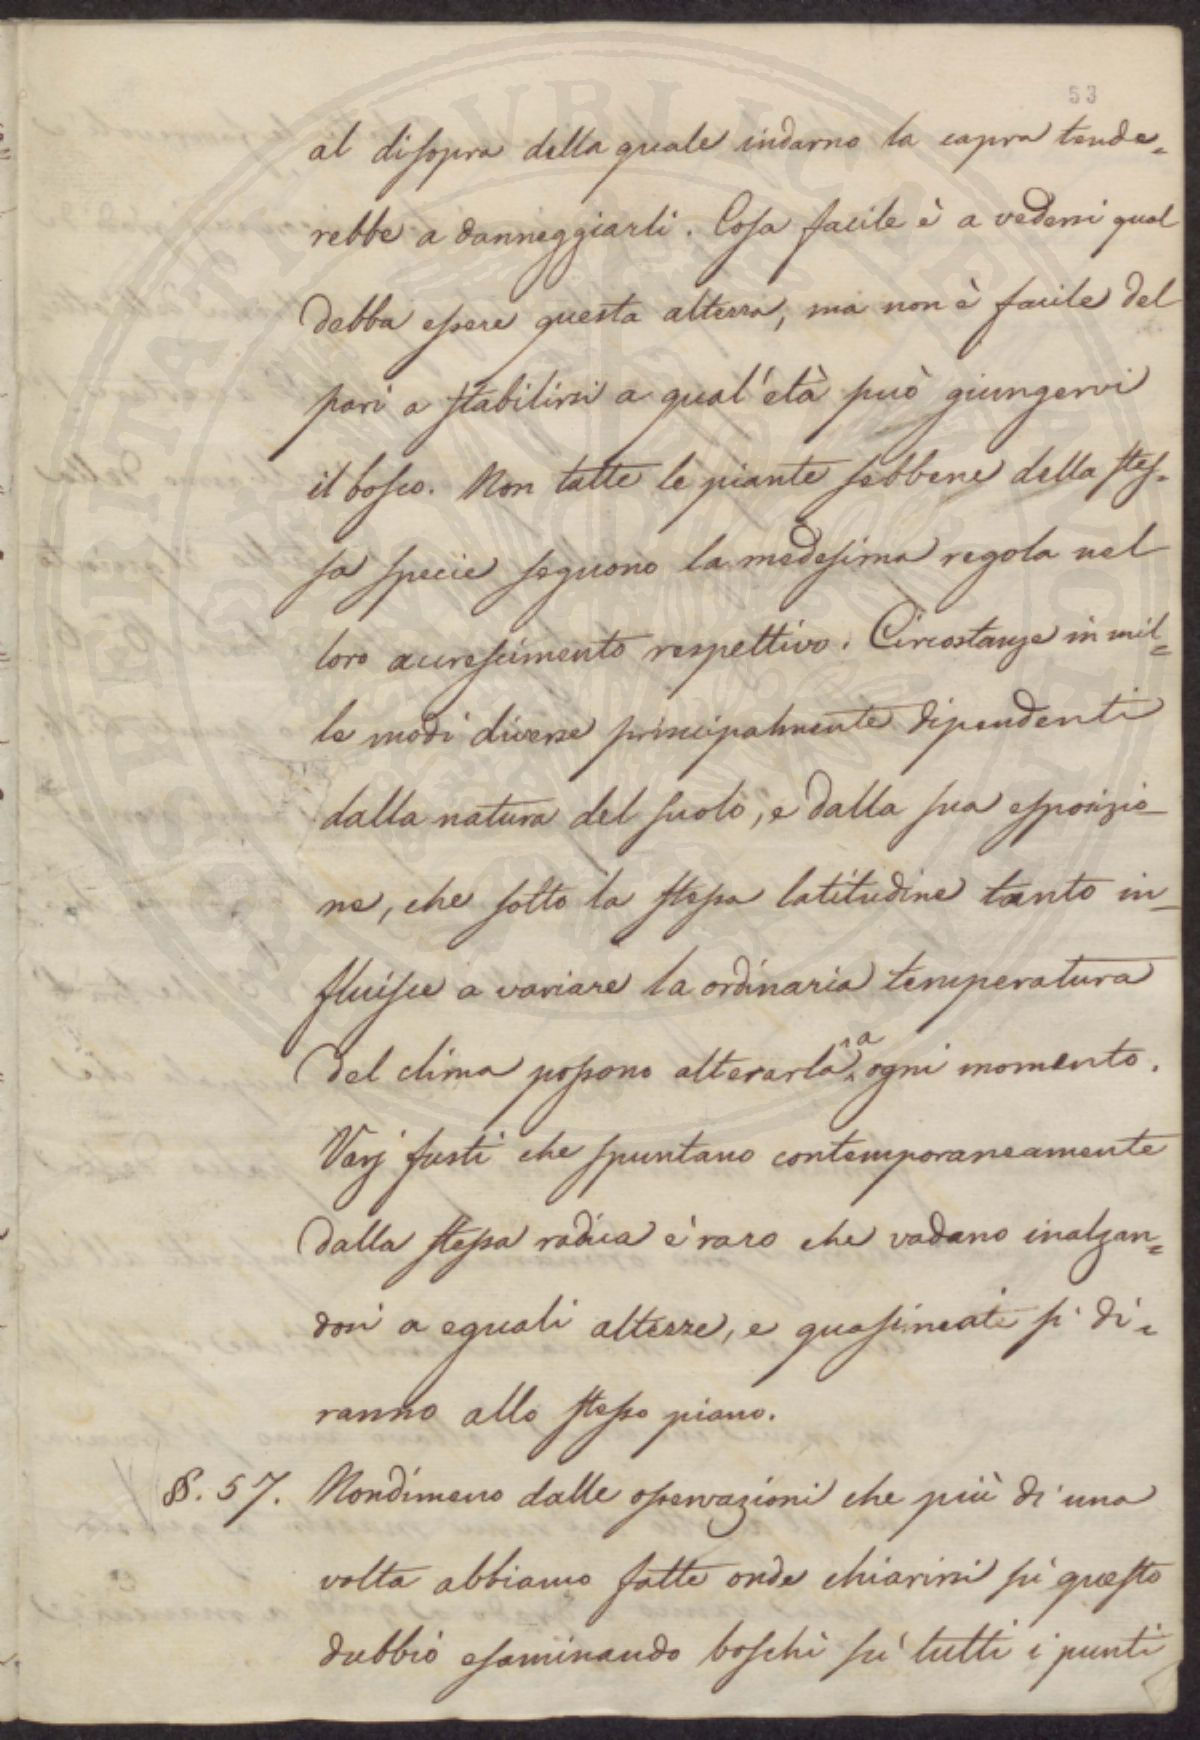 53
al disopra della quale indarno la capra tende=
rebbe a danneggiarli. Cosa facile è a vedersi qual
debba essere questa altezza, ma non è facile del
pari a stabilirsi a qual'età può giungervi
il bosco. Non tutte le piante sebbene della stes=
sa specie seguono la medesima regola nel
loro accrescimento respettivo. Circostanze in mil=
le modi diverse principalmente dipendenti
dalla natura del suolo, e dalla sua esposizio-
ne, che sotto la stessa latitudine tanto in-
fluisce a variare la ordinaria temperatura
del clima possono alterarla a ogni momento.
Varj fusti che spuntano contemporaneamente
dalla stessa radica è raro che vadano inalzan=
dosi a eguali altezze, e quasi si di=
ranno allo stesso piano.
§. 57. Nondimeno dalle osservazioni che più di una
volta abbiamo fatte onde chiarirsi sù questo
dubbio esaminando boschi sù tutti i punti